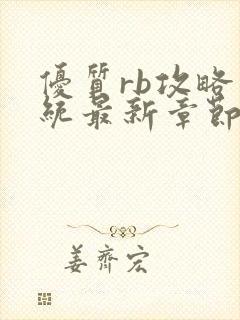 優質rb攻略
統最新章節
姜齊宏